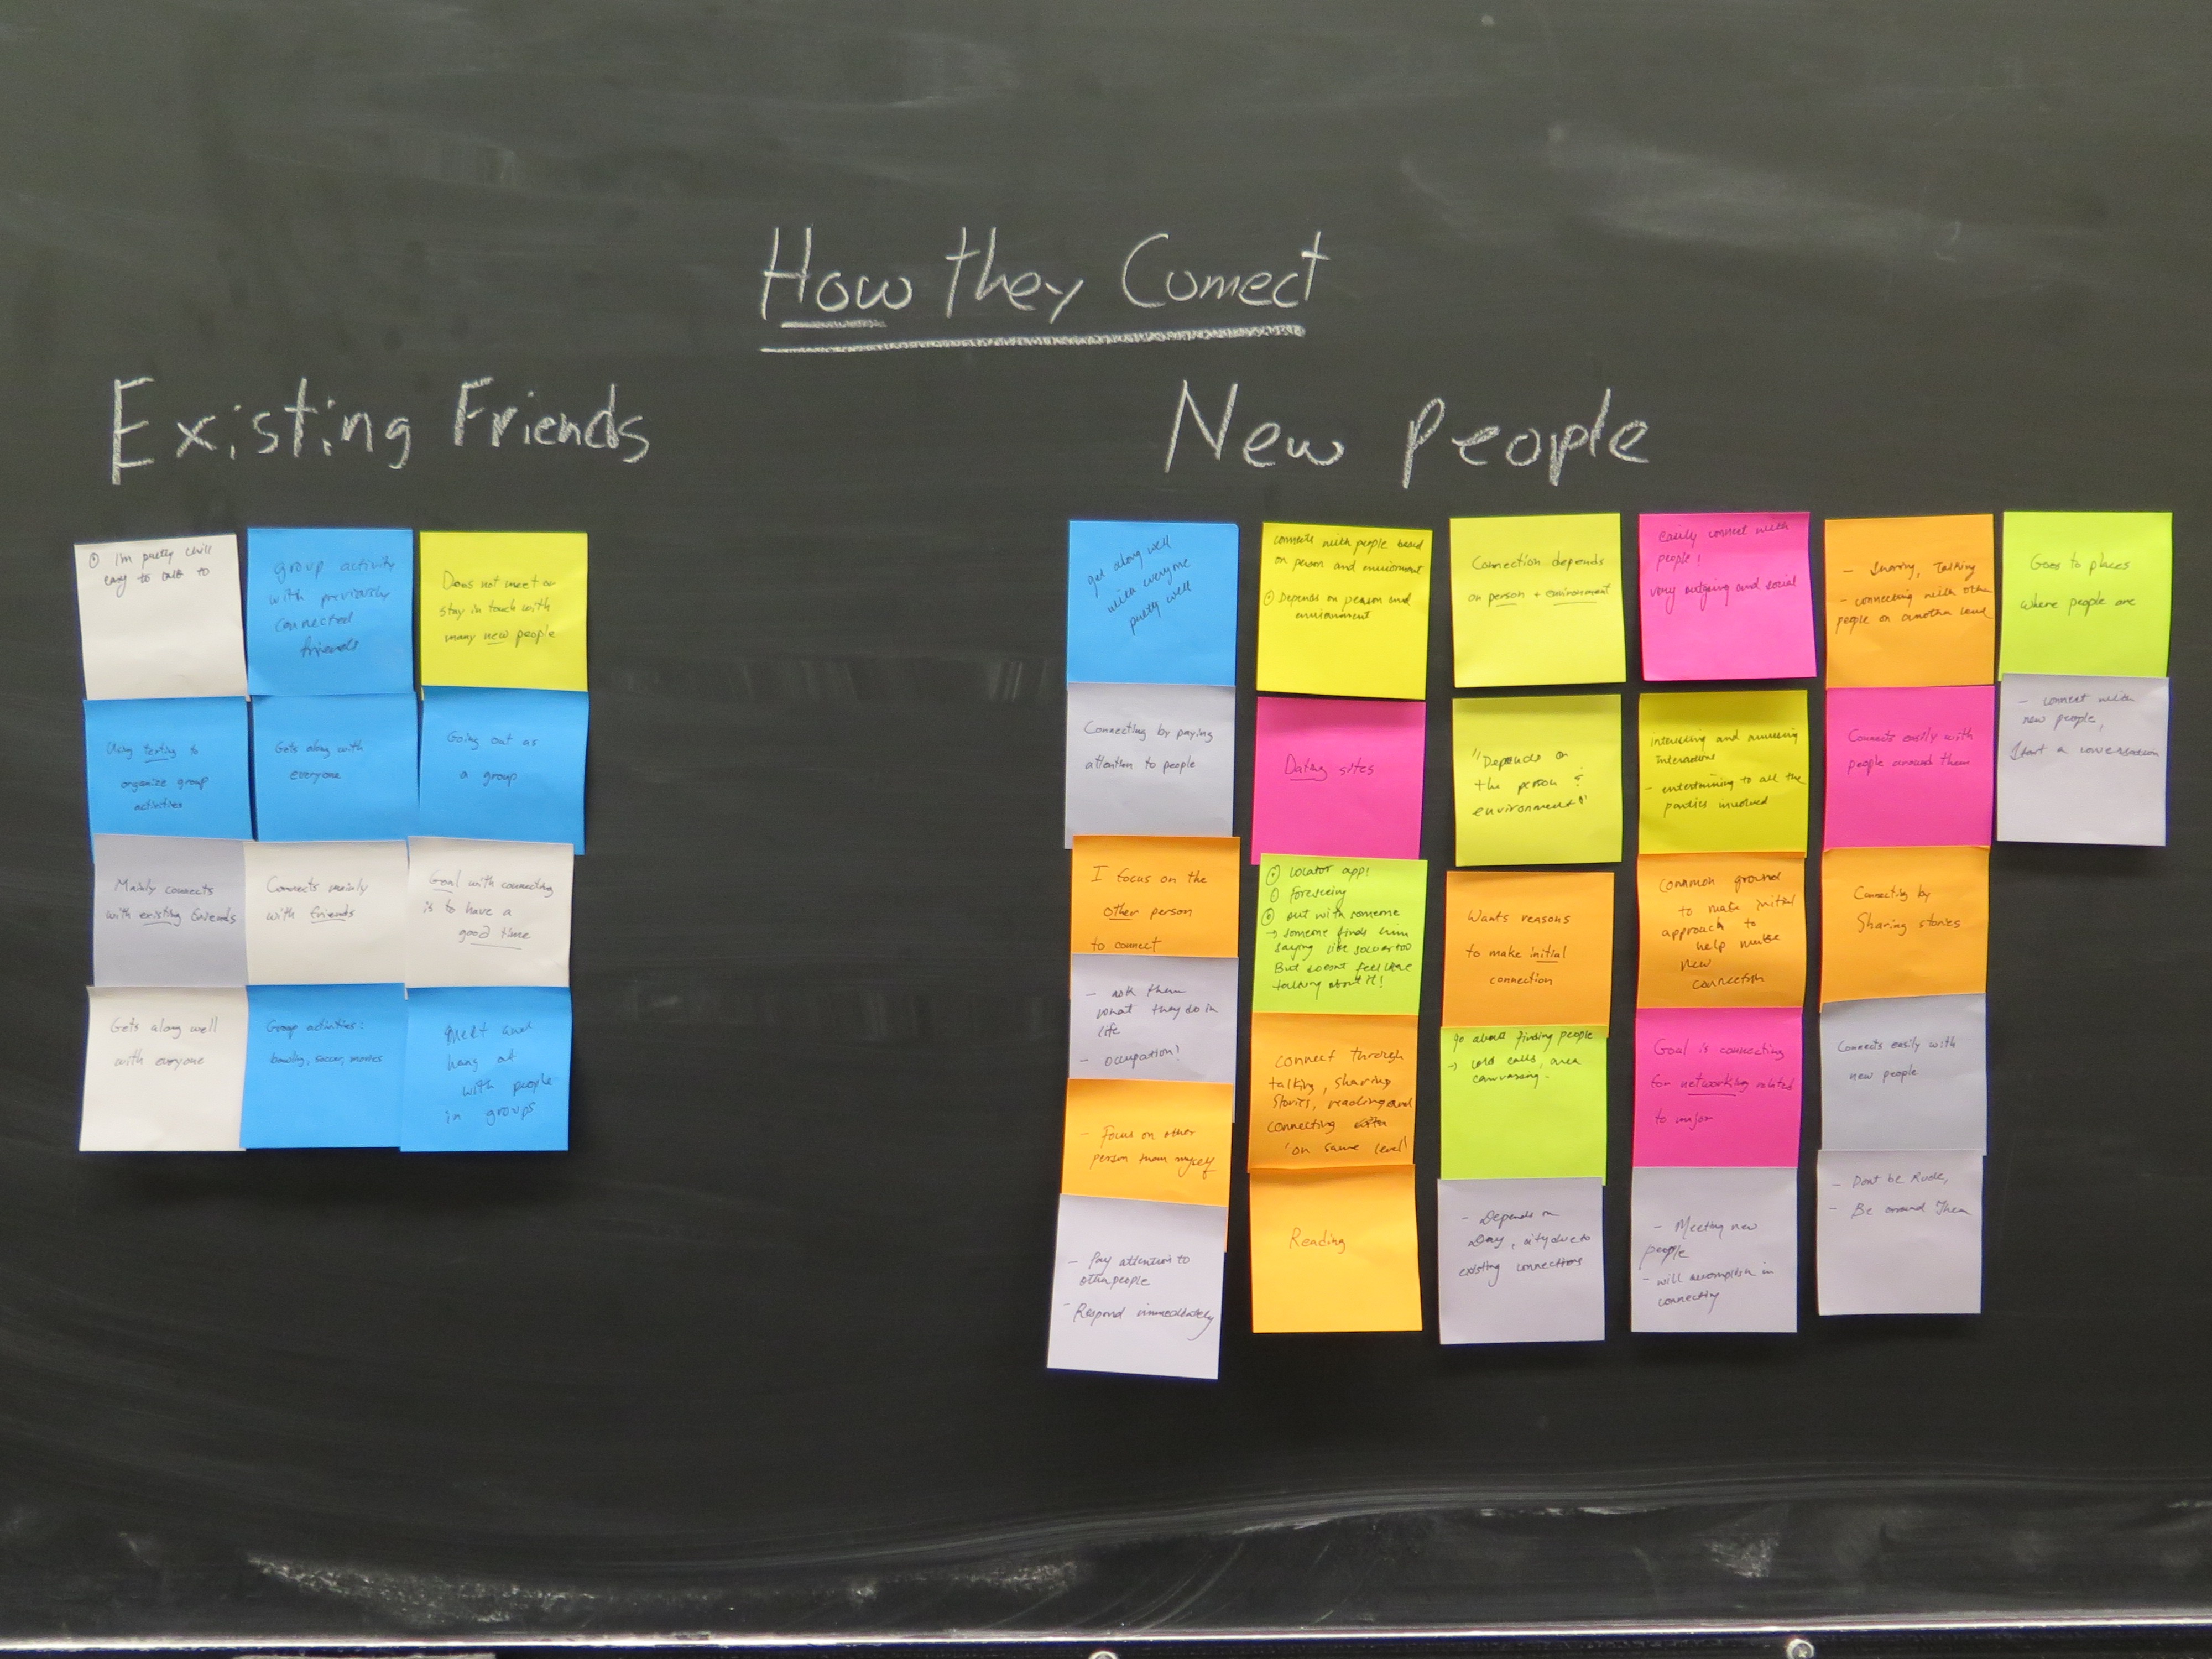 How they Connect
Existing Friends
New People
I'm pretty chill
easy to talk to
group activity
with previously
connected
friends
Does not meet or
stay in touch with
many new people
Using texting to
organize group
activities
Gets along with
everyone
Going out as
a group
Mainly connects
with existing friends
Connects mainly
with friends
Goal with connecting
is to have a
good time
Gets along well
with everyone
Group activities:
bowling, soccer, movies
Meet and
hang out
with people
in groups
get along well
with everyone
pretty well
Connecting by paying
attention to people
I focus on the
other person
to connect
- ask them
what they do in
life
- occupation!
- Focus on other
person than myself
- Pay attention to
other people
- Respond immediately
connects with people based
on person and enviorment
Depends on person and
enviornment
Dating sites
locator app!
Foreseeing
out with someone
→ someone finds him
saying like soccer too
But doesnt feel like
talking about it!
Connect through
talking, sharing
stories, reading and
connecting
'on same level'
Reading
Connection depends
on person + environment
"Depends on
the person &
environment"
Wants reasons
to make initial
connection
go about finding people
→ cold calls, area
canvassing.
- Depends on
Day, city due to
existing connections
easily connect with
people!
very outgoing and social
Interesting and amusing
interactions
- entertaining to all the
parties involved
common ground
to make initial
approach to
help make
new
connection
Goal is connecting
for networking related
to major
- Meeting new
people
- will accomplish in
connecting
- Sharing, Talking
- connecting with other
people on another level
Connects easily with
people around them
Connecting by
Sharing stories
Connects easily with
new people
- Dont be Rude,
- Be around Them
Goes to places
where people are
- connect with
new people,
Start a conversation